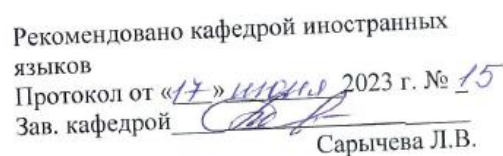 Рекомендовано кафедрой иностранных
языков
Протокол от «17» июня 2023 г. № 15
Зав. кафедрой
Сарычева Л.В.